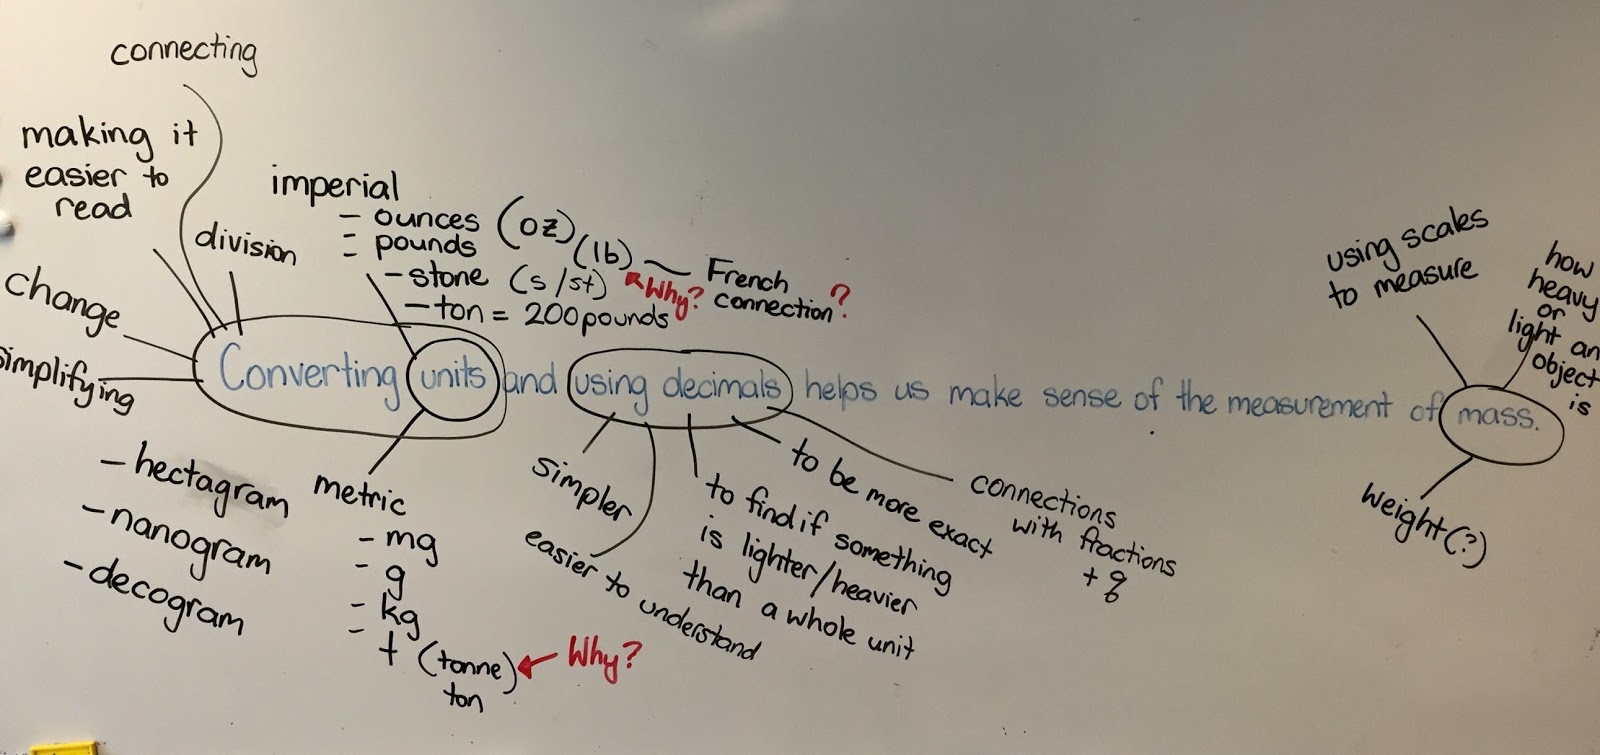 connecting
making it
easier to
read
division
change
simplifying
imperial
- ounces (oz)
- pounds (lb) ~ French
connection?
Why?
- stone (s/st)
- ton = 200 pounds
Converting units and using decimals helps us make sense of the measurement of mass.
- hectagram
- nanogram
- decogram
metric
- mg
- g
- kg
- t (tonne)
ton
Why?
simpler
easier to understand
to find if something
is lighter/heavier
than a whole unit
to be more exact
connections
with fractions
+ %
using scales
to measure
how
heavy
or
light an
object
is
weight(?)